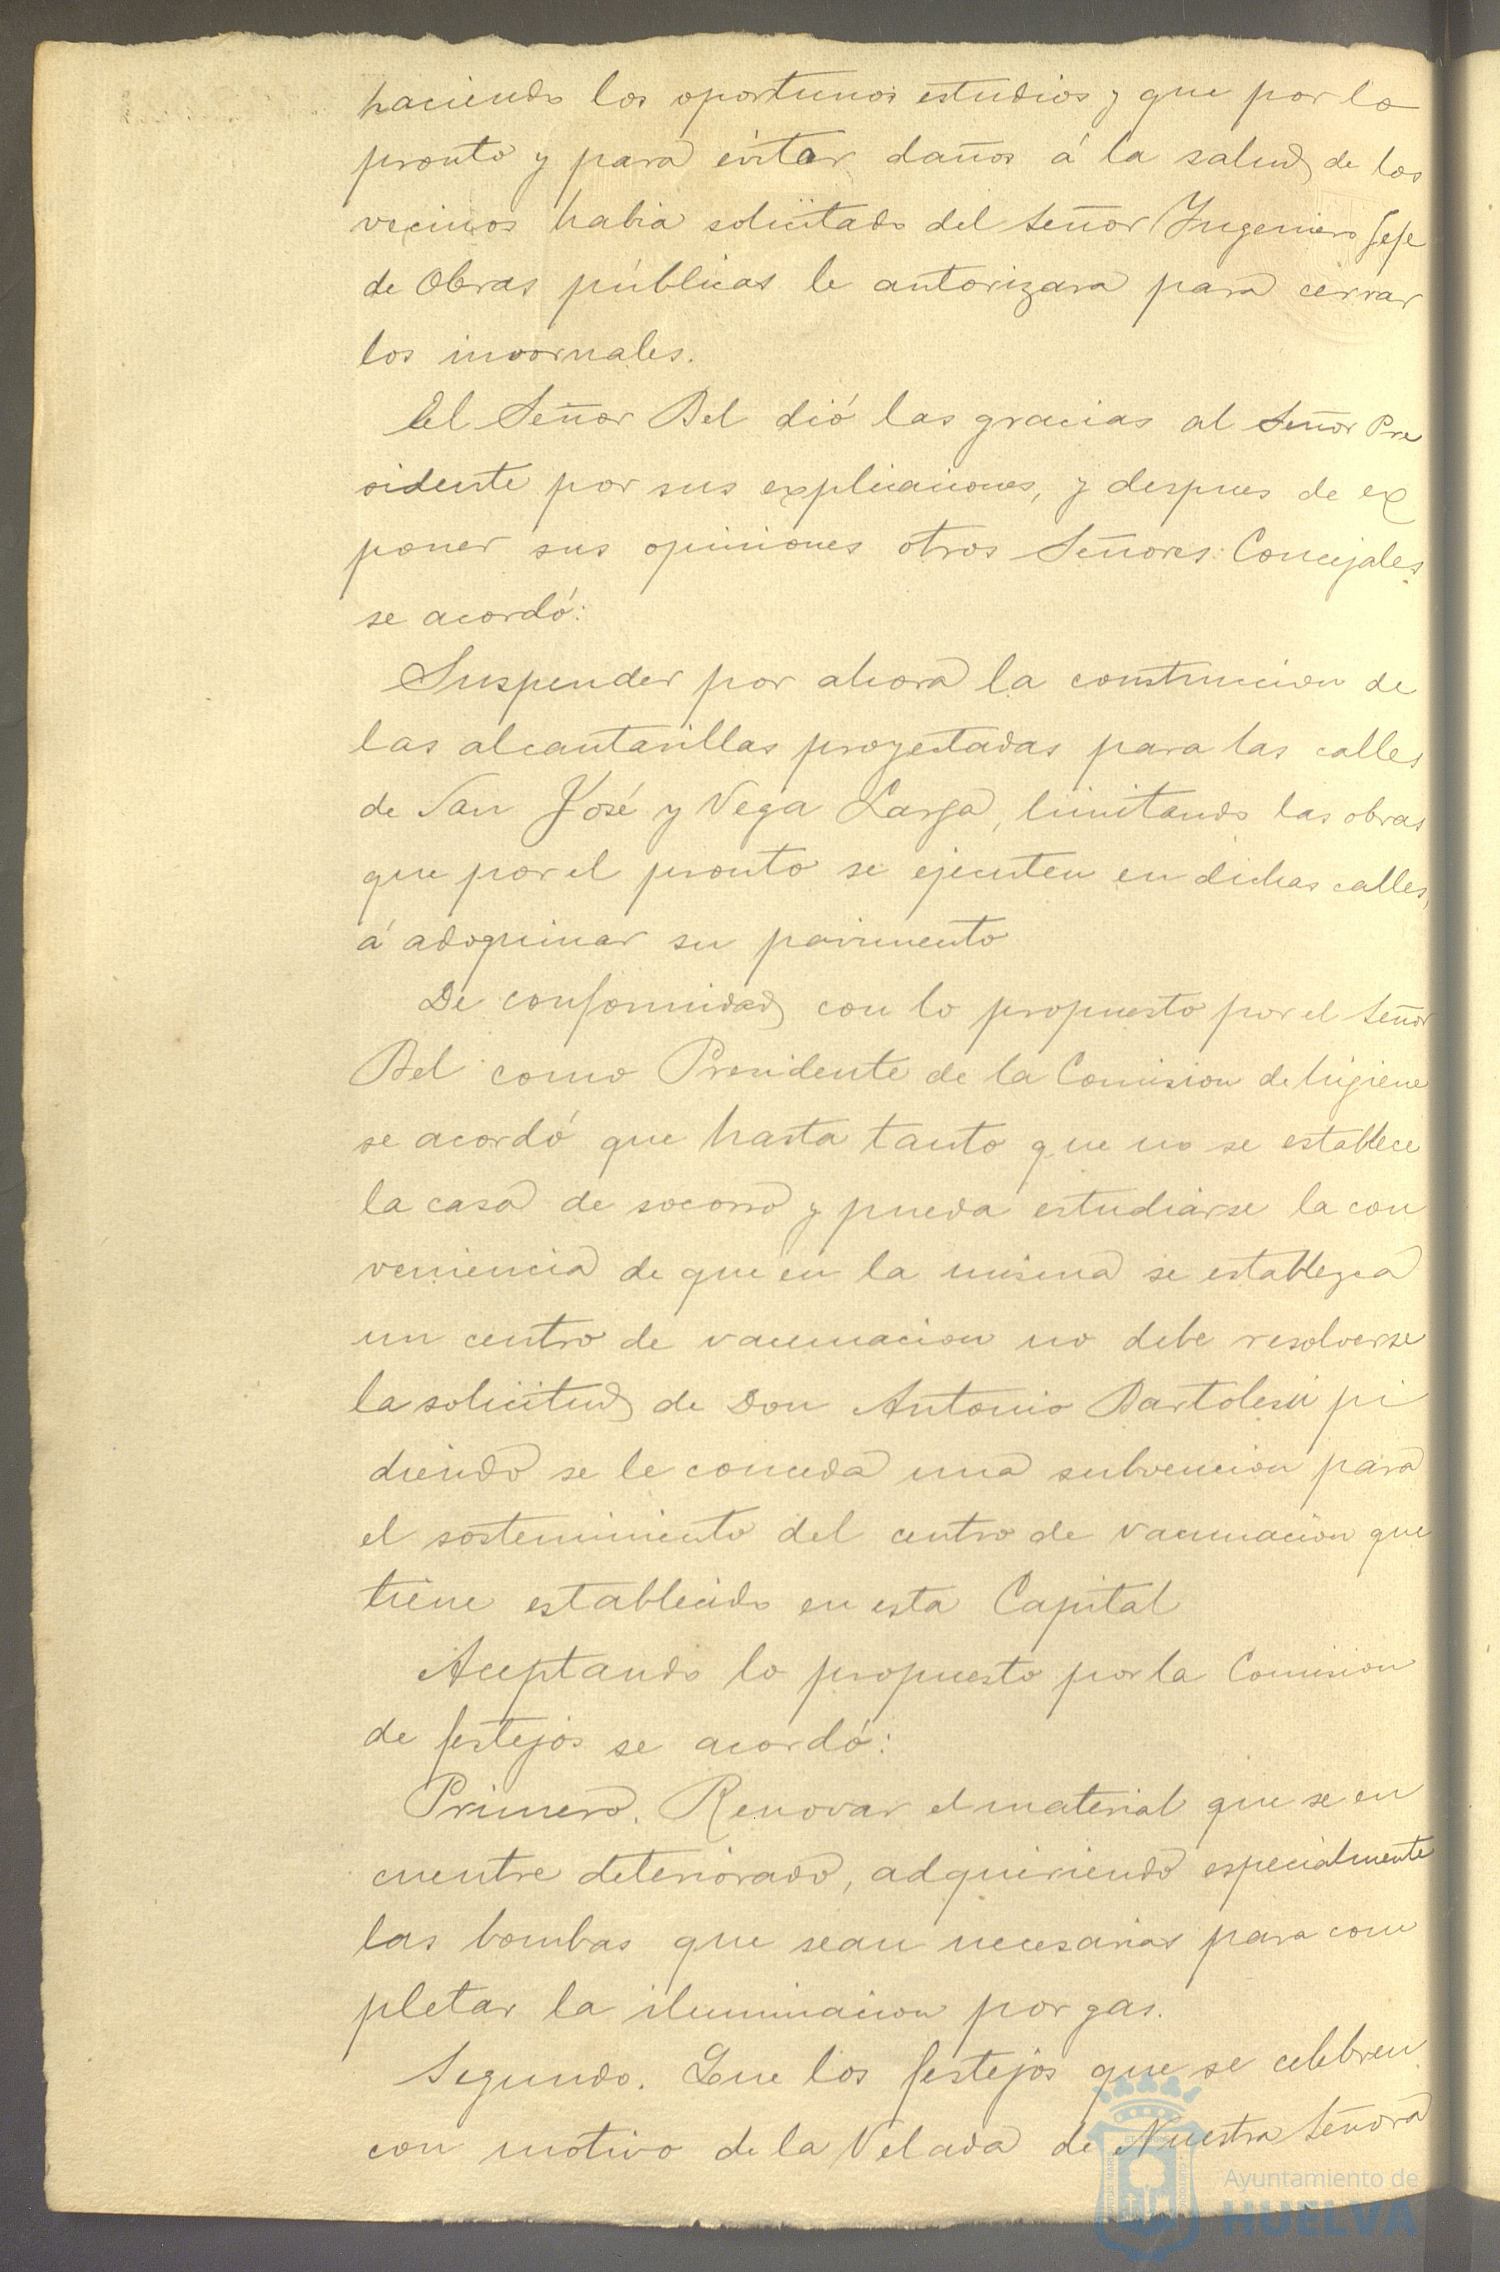 haciendo los oportunos estudios y que por lo
pronto y para evitar daños á la salud de los
vecinos habia solicitado del Señor Ingeniero Gefe
de Obras públicas le autorizara para cerrar
los invornales.
El Señor Bel dió las gracias al Señor Pre
sidente por sus explicaciones, y despues de ex
poner sus opiniones otros Señores Concejales
se acordó:
Suspender por ahora la construccion de
las alcantarillas proyectadas para las calles
de San José y Vega Larga, limitando las obras
que por el pronto se ejecuten en dichas calles,
á adoquinar su pavimento
De conformidad con lo propuesto por el Señor
Bel como Presidente de la Comision de higiene
se acordó que hasta tanto que no se establece
la casa de socorro y pueda estudiarse la con
veniencia de que en la misma se establezca
un centro de vacunacion no debe resolverse
la solicitud de Don Antonio Bartolesi pi
diendo se le conceda una subvencion para
el sostenimiento del centro de vacunacion que
tiene establecido en esta Capital
Aceptando lo propuesto por la Comision
de festejos se acordó:
Primero. Renovar el material que se en
cuentre deteriorado, adquiriendo especialmente
las bombas que sean necesarias para com
pletar la iluminacion por gas.
Segundo. Que los festejos que se celebren
con motivo de la Velada de Nuestra Señora
Ayuntamiento de
HUELVA